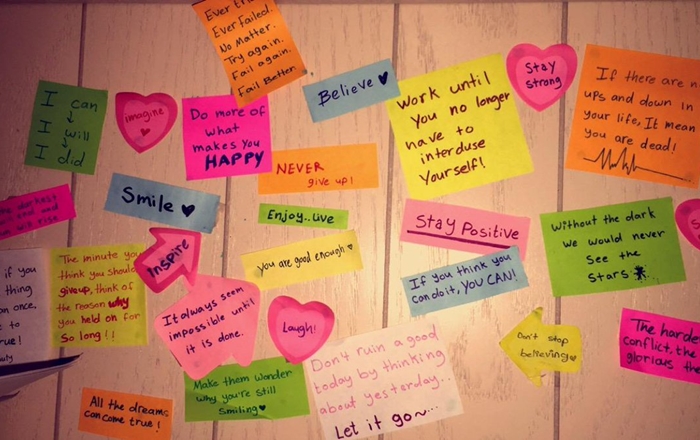 Ever
Ever failed.
No Matter.
Try again.
Fail again.
Fail Better
I can
I will
I did
imagine
Do more of
what
makes you
HAPPY
Believe
Work until
You no longer
have to
interduse
Yourself!
Stay
strong
If there are
ups and down in
your life, It mean
you are dead!
the darkest
and
will rise
Smile
NEVER
give up!
Enjoy..Live
Stay Positive
Without the dark
We would never
See the
Stars
if you
thing
on once,
to
true!
The minute you
think you should
giveup, think of
the reason why
you held on for
So long!!
Inspire
You are good enough
If you think you
can do it, YOU CAN!
It always seem
impossible until
it is done.
Laugh!
Don't ruin a good
today by thinking
about yesterday...
Let it go~...
Don't stop
believing
The harde
conflict, the
glorious the
Make them Wonder
why you're still
Smiling
All the dreams
can come true!